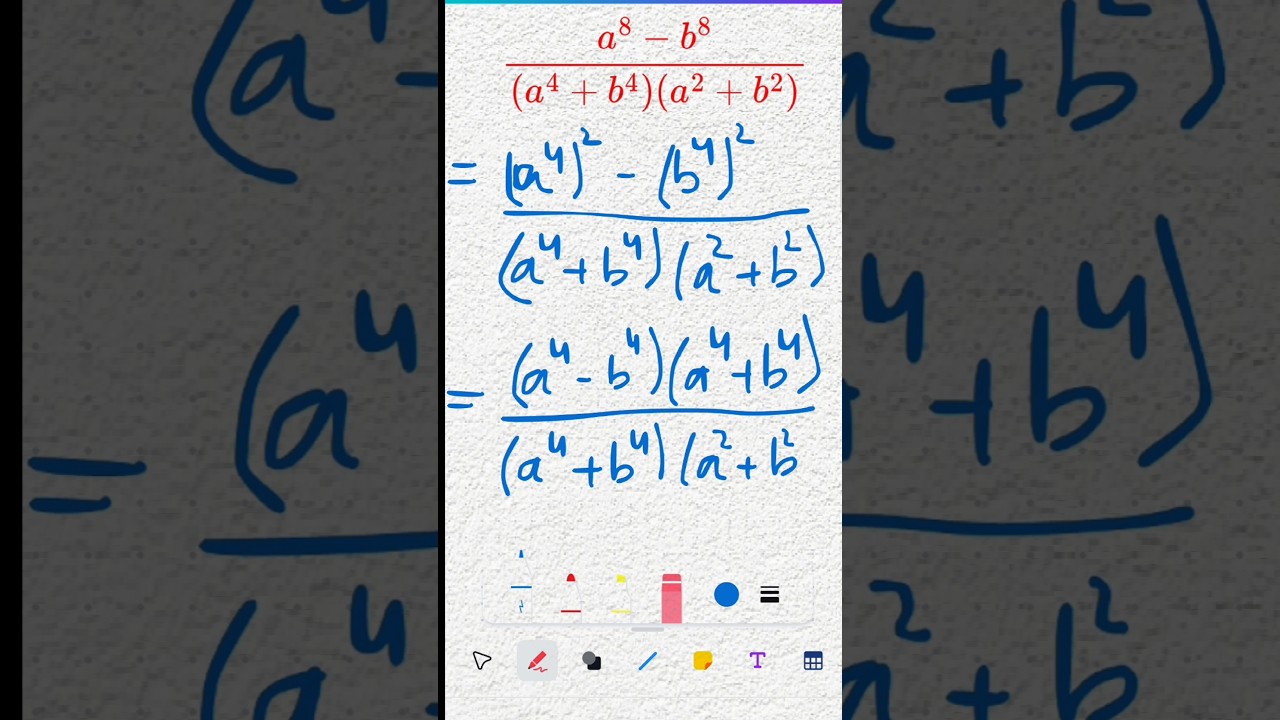 a⁸ − b⁸
(a⁴ + b⁴)(a² + b²)
= (a⁴)² - (b⁴)²
(a⁴ + b⁴) (a² + b²)
= (a⁴ - b⁴)(a⁴ + b⁴)
(a⁴ + b⁴) (a² + b²
T